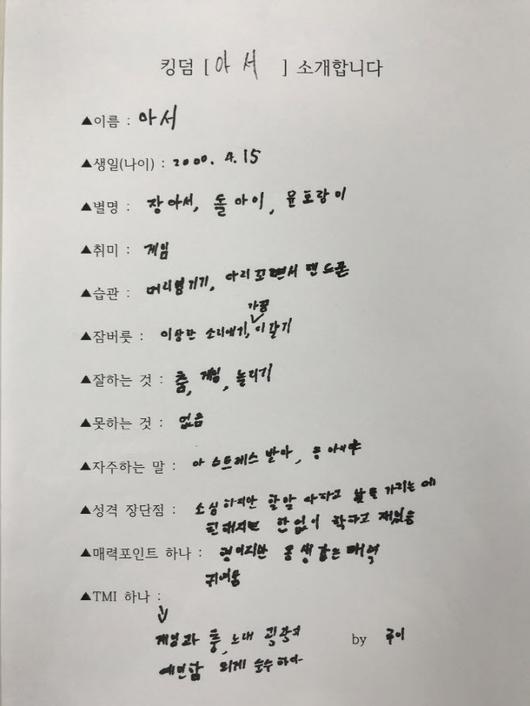 킹덤 [아서 ] 소개합니다
▲이름 : 아서
▲생일(나이) : 2000. 4. 15
▲별명 : 장아서, 돌아이, 윤호랑이
▲취미 : 게임
▲습관 : 머리넘기기, 다리꼬면서 핸드폰
가끔
▲잠버릇 : 이상한 소리내기, 이갈기
▲잘하는 것 : 춤, 게임, 놀리기
▲못하는 것 : 없음
▲자주하는 말 : 아 스트레스 받아,
▲성격 장단점 : 소심하지만 할말 다하고 낯을 가리는데
친해지면 한없이 착하고 재밌음
▲매력포인트 하나 :
귀여움
▲TMI 하나 :
게임과 춤, 노래
예민함 외게 순수하다
by 루이